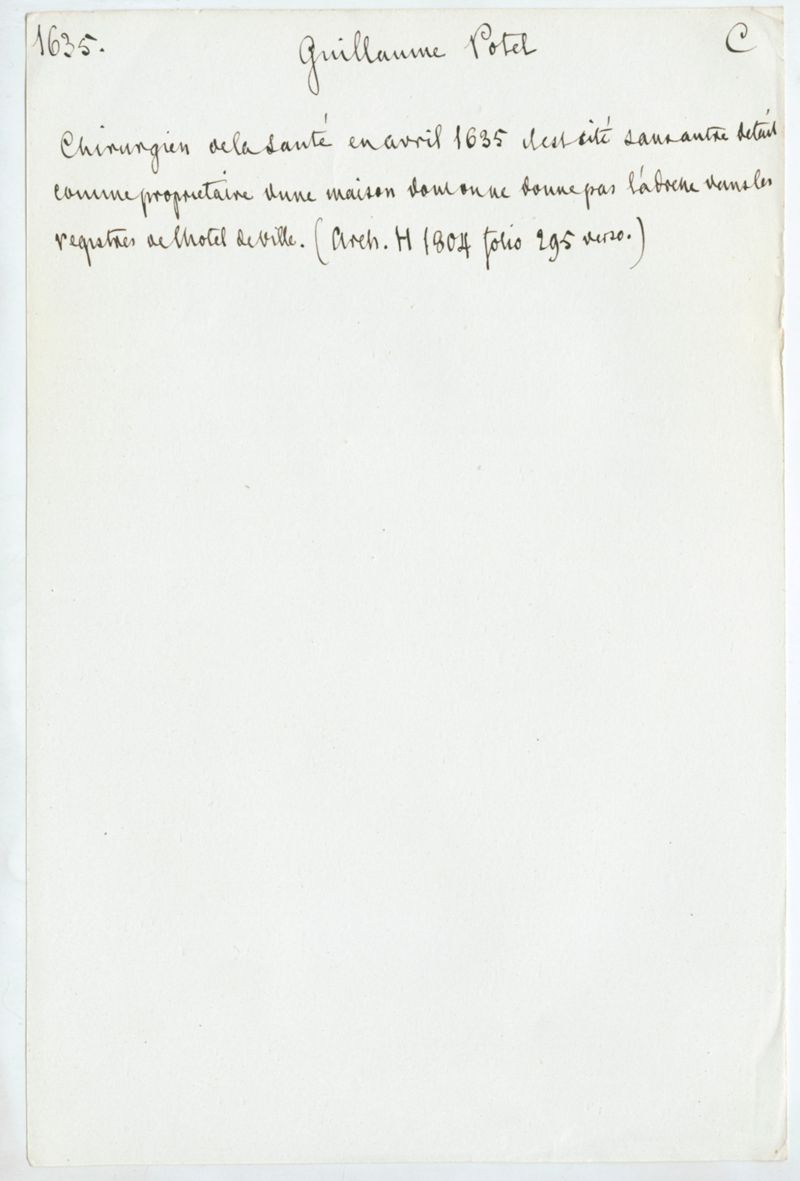 1635. Guillaume Potel C
Chirurgien de la santé en avril 1635 il est cité sans autre detail
comme proprietaire d'une maison dont on ne donne pas l'adresse dans les
registres de l'hotel de ville. (Arch. H 1804 folio 295 verso.)